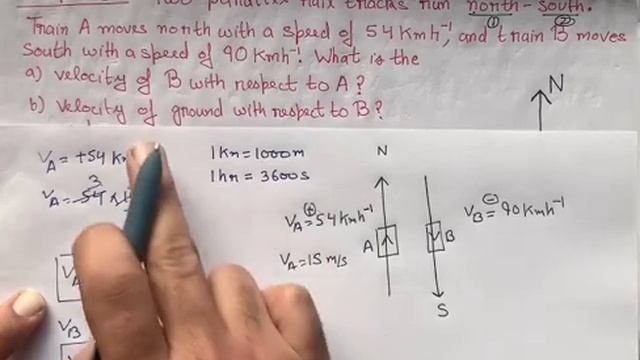 Two parallel rail tracks run north - south.
① ②
Train A moves north with a speed of 54 Kmh⁻¹, and train B moves
South with a speed of 90 Kmh⁻¹. What is the
a) velocity of B with respect to A?
b) velocity of ground with respect to B?
N
V_A = +54
1 Km = 1000m
1 hr = 3600s
N
3
V_A = 54
V_A = 54 Kmh⁻¹
+
V_B = 90 Kmh⁻¹
−
A
B
V_A = 15 m/s
S
V_A
V_B